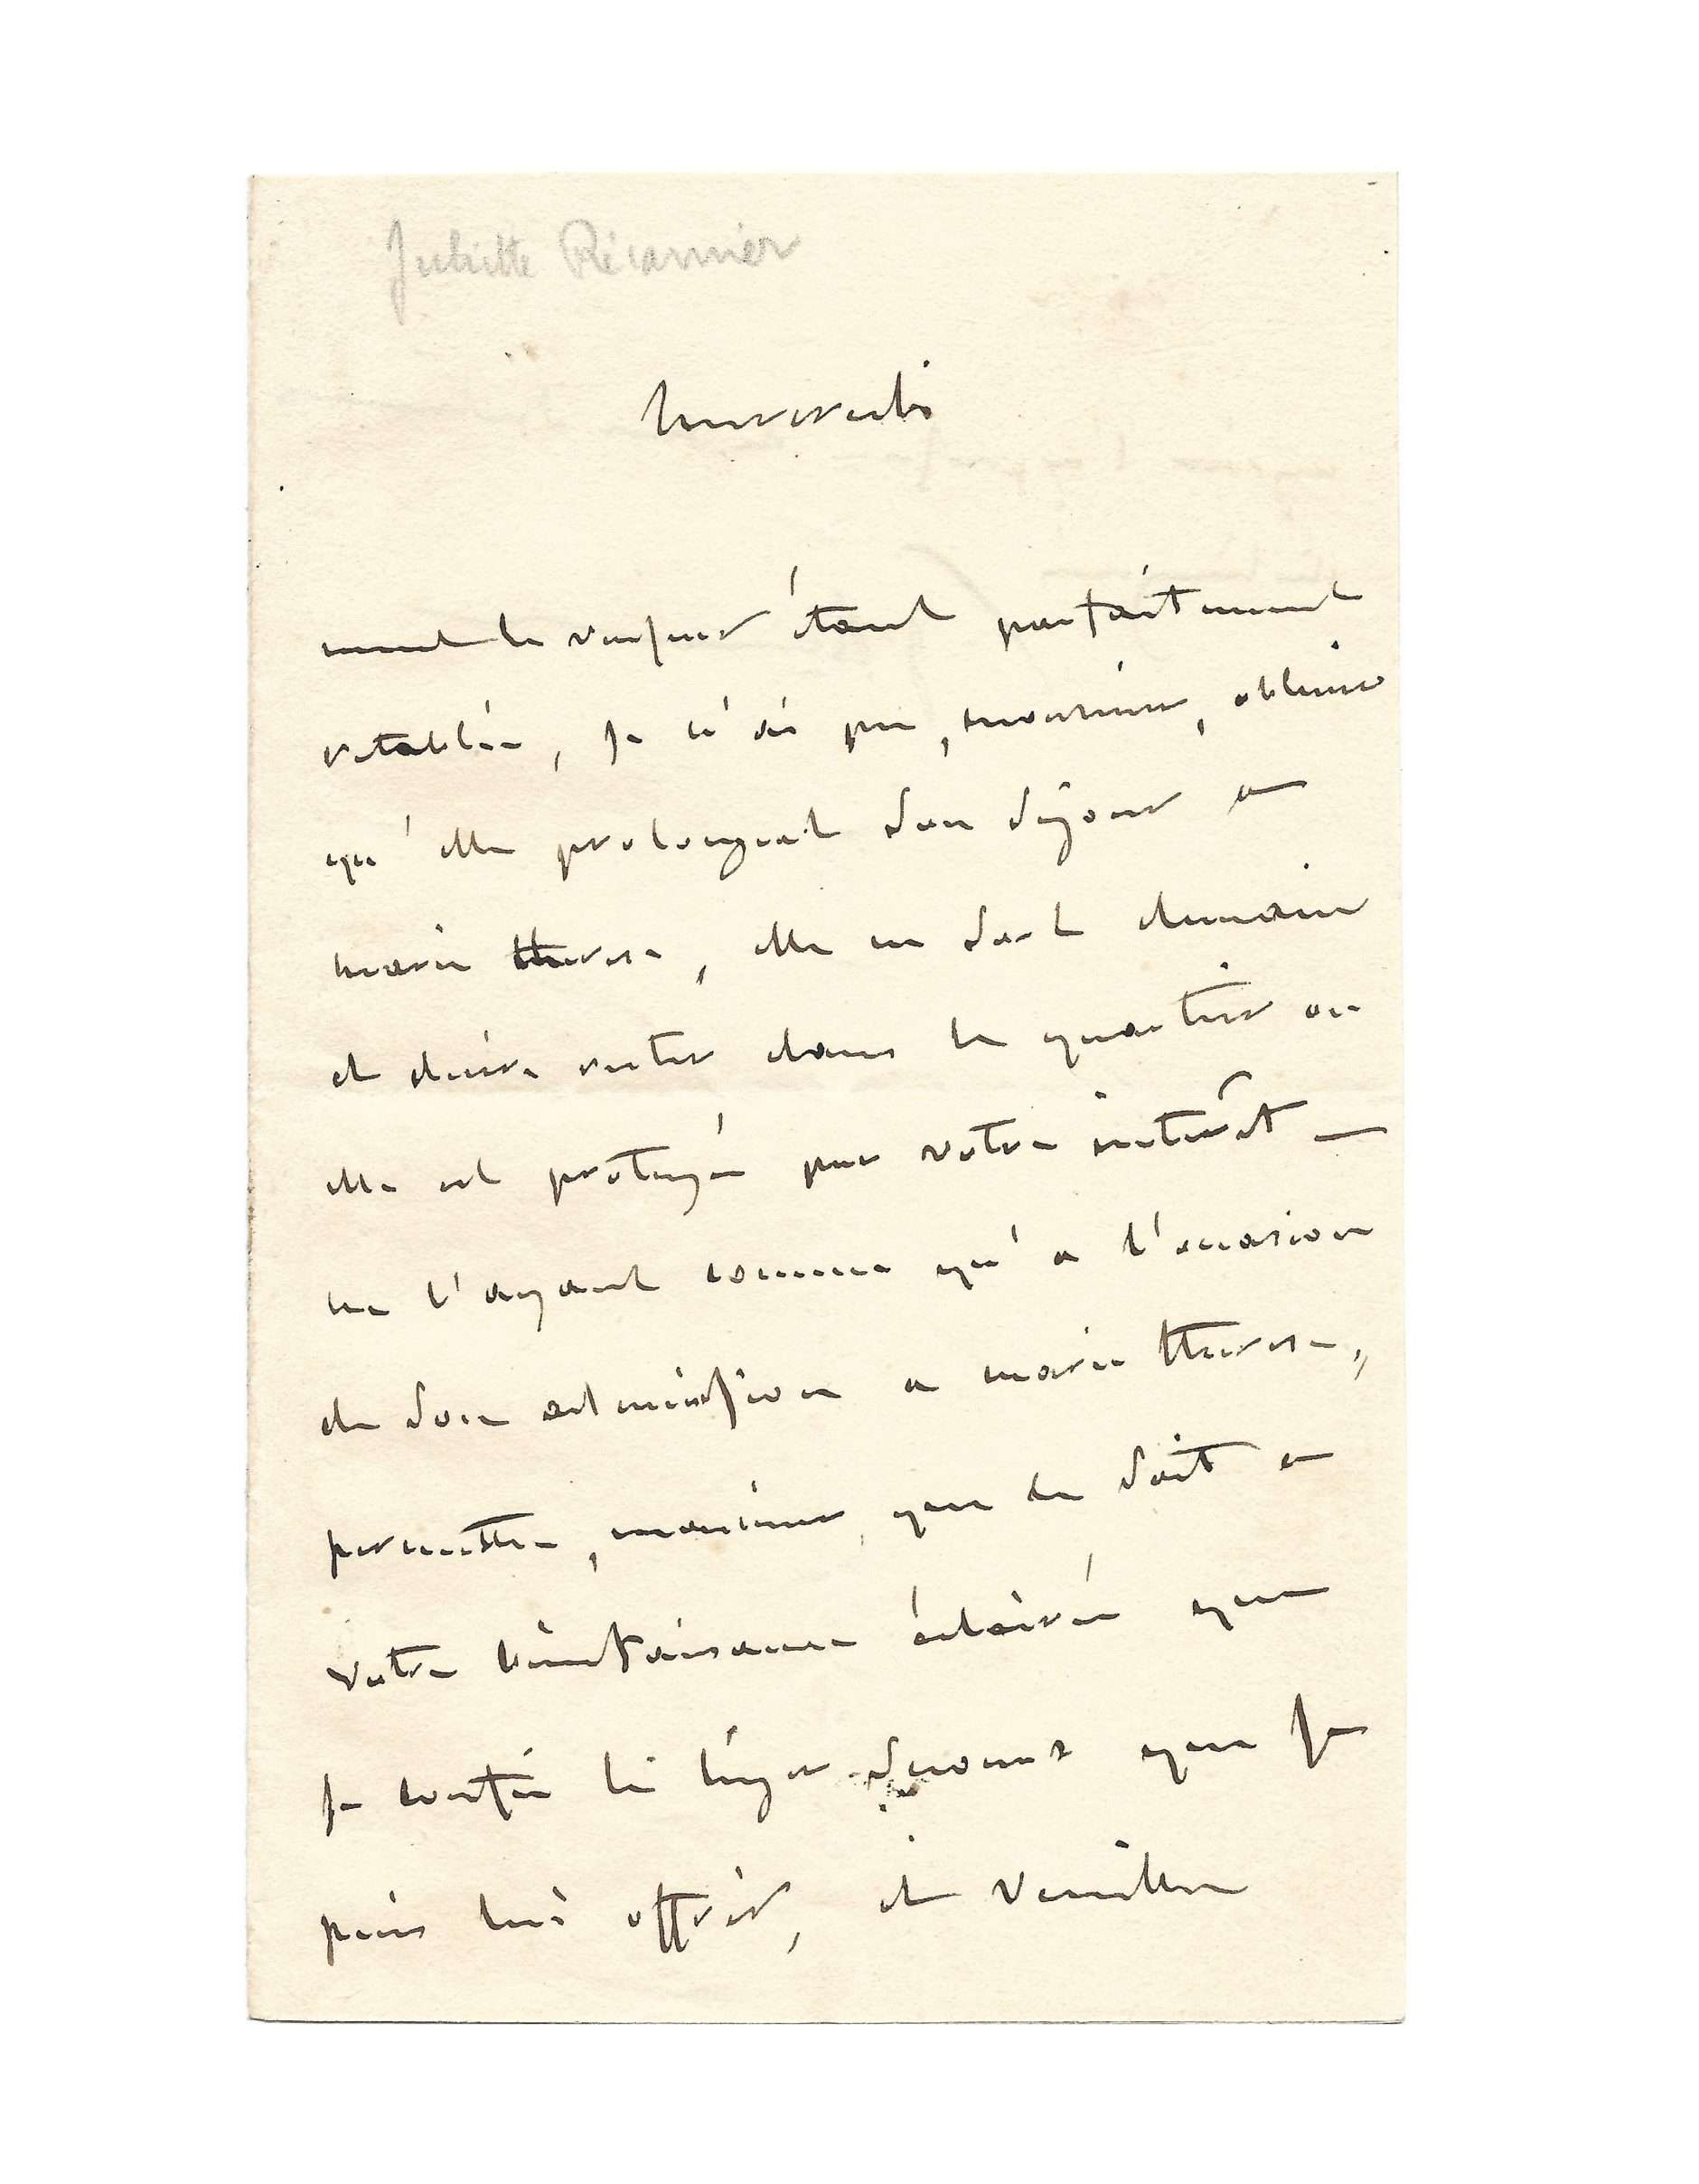 Juliette Récamier
mercredi
étant parfaitement
rétablie, je n'ai pu, monsieur, obtenir
qu'elle prolongeat son séjour a
marie therese, elle en sort demain
et desire rester dans le quartier ou
elle est protégée par votre intérêt —
ne l'ayant connue qu'a l'occasion
de son admission a marie therese,
permettre, monsieur, que ce soit a
votre bienfaisance éclairée que
je confie le léger secours que je
puis lui offrir, et veuillez